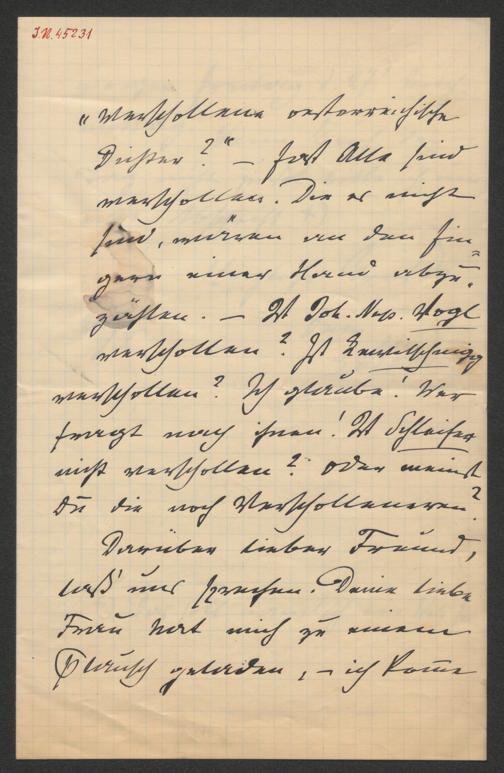 I.N. 45231
„Verschollene oesterreichische
Dichter?" – fast Alle sind
verschollen. Die es nicht
sind, wären an den Fin=
gern einer Hand abzu=
zählen. – Ist Joh. Nep. Vogl
verschollen? Ist Levitschnigg
verschollen? Ich glaube! Wer
fragt nach ihnen! Ist Schleifer
nicht verschollen? Oder meinst
Du die noch Verscholleneren?
Darüber lieber Freund,
laß' uns sprechen. Deine liebe
Frau hat mich zu einem
Plausch geladen, – ich kom̅e